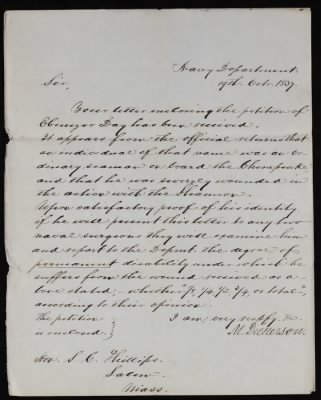 Navy Department.
19th. Octr. 1837.
Sir,
Your letter enclosing the petition of
Ebenezer Day has been received.
It appears from the official returns that
an individual of that name was an or-
dinary seaman on board the Chesapeake
and that he was severely wounded in
the action with the Shannon.
Upon satisfactory proof of his identity
if he will present this letter to any two
naval surgeons they will examine him
and report to the Depmt the degree of
permanent disability under which he
suffers from the wound received as a-
bove stated; whether "⅓, ¼, ½ ¾, or total",
according to their opinion.
The petition
is enclosed.
I am, very respy, &c
M. Dickerson.
Hon. S. C. Phillips.
Salem
Mass.